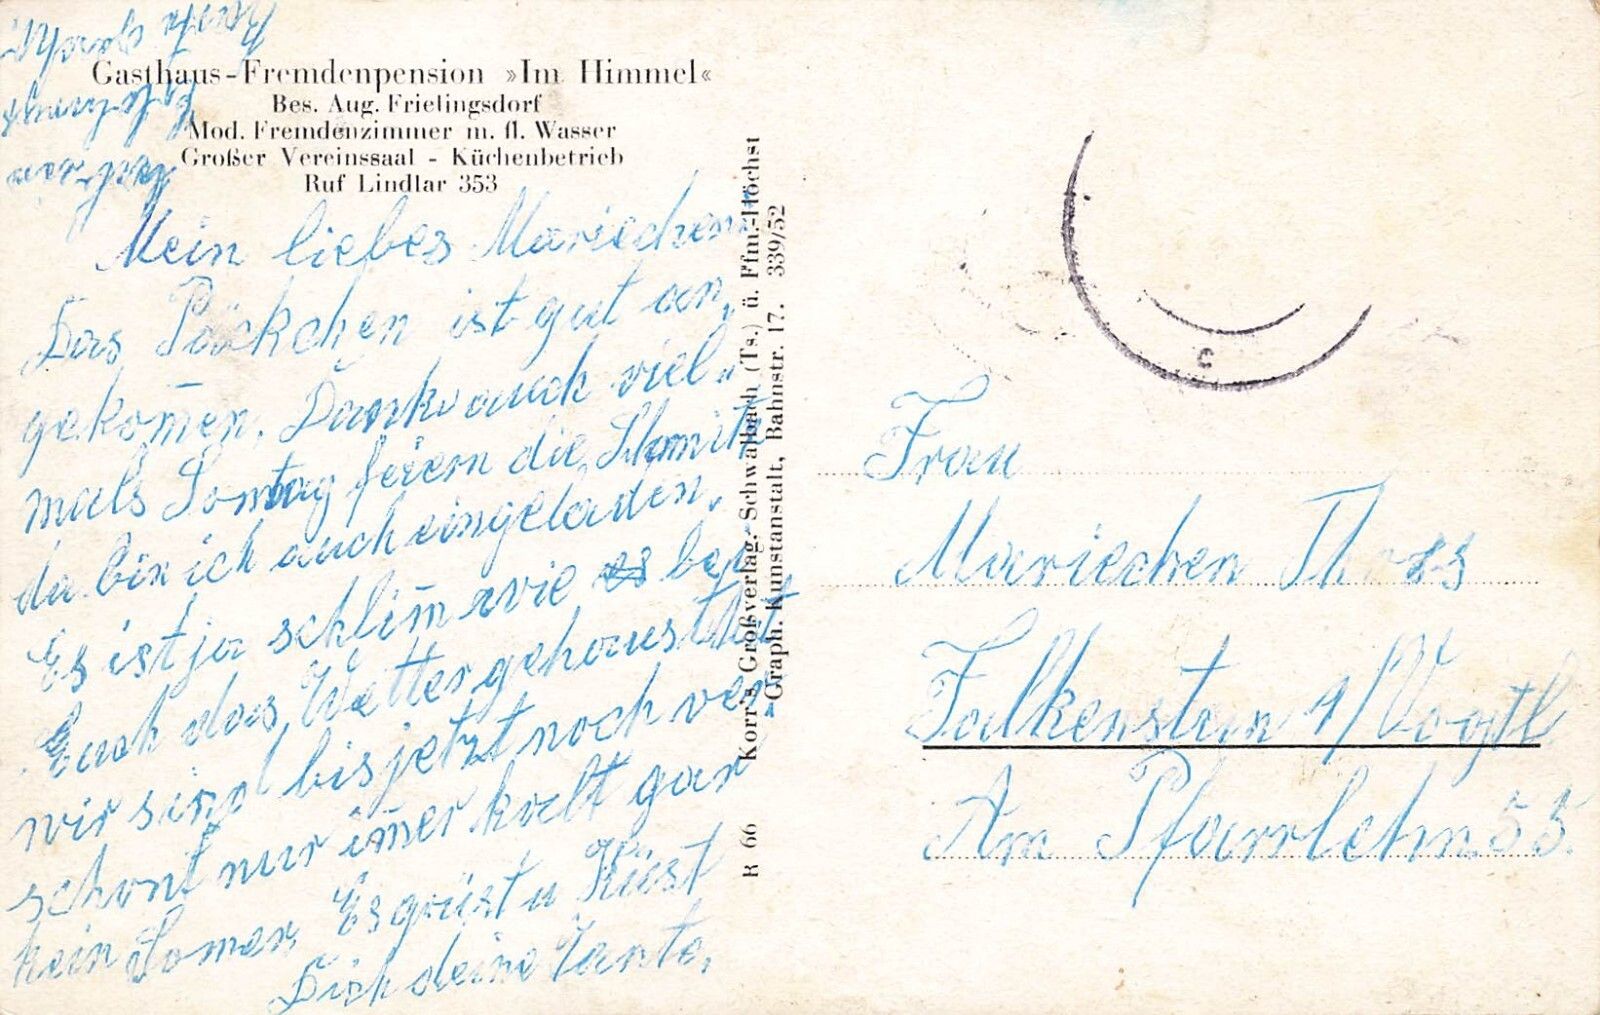 Gasthaus-Fremdenpension »Im Himmel«
Bes. Aug. Frielingsdorf
Mod. Fremdenzimmer m. fl. Wasser
Großer Vereinssaal - Küchenbetrieb
Ruf Lindlar 353
Mein liebes Mariechen
Das Päckchen ist gut an„
gekom̄en. Danke auch viel„
mals Sontag feiern die Schmitz
da bin ich auch eingeladen.
Es ist ja schlim̄ wie es bei
Euch das Wetter gehaust hat
wir sind bis jetzt noch ver„
schont nur im̄er kalt gar
kein Somer. Es grüst u Küst
Dich deine Tante.
Korr's Großverlag. Schwalbach (Ts.) ü. Ffm.-Höchst
Graph. Kunstanstalt, Bahnstr. 17. 339/52
R 66
Frau
Mariechen Thoss
Falkenstein 1/Vogtl
Am Pfarrlehn. 55.